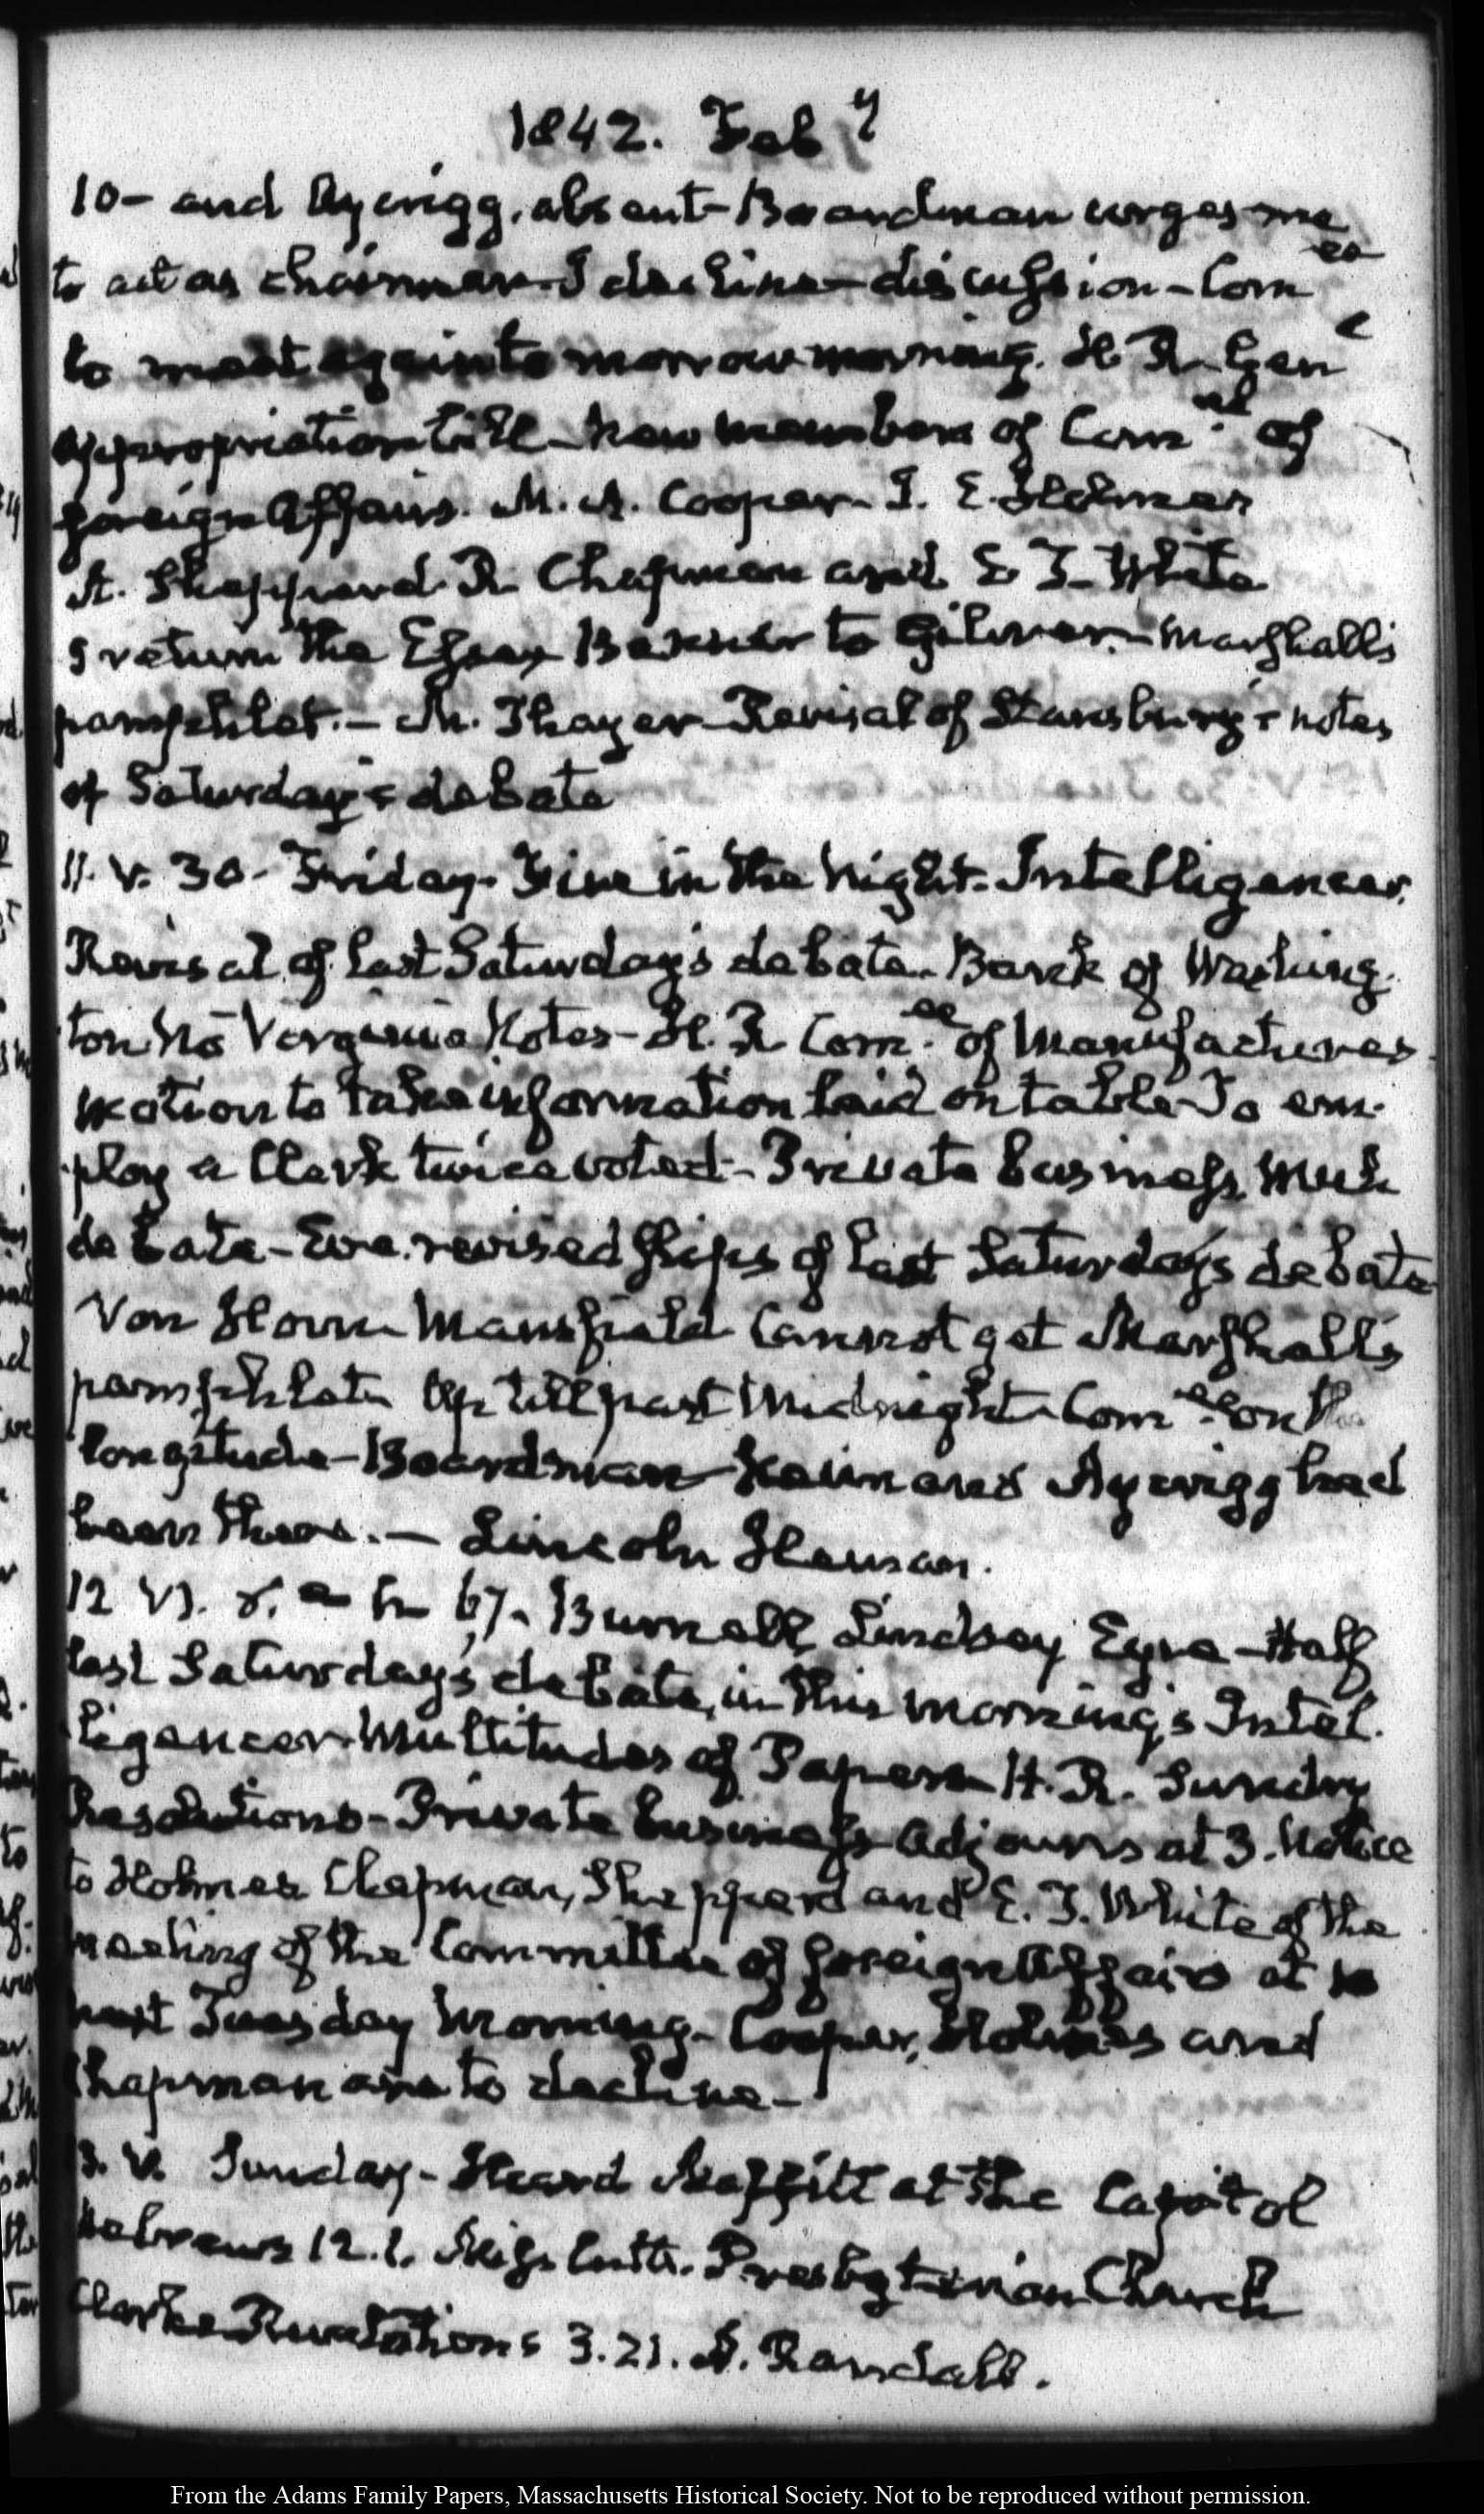 1842. Feb y
10- and Aycrigg, absent- Boardman urges me
to act as chairman- I decline- discussion- Com ee
to meet again to morrow morning. H. R. Gen l
appropriation bill- new members of Com. ee of
foreign Affairs. M. A. Cooper- I. E. Holmes
A. Shepperd R. Chapman and E. J. White
I return the Essex Banner to Gilmer.- Marshall's
pamphlet.- M. Thayer- Revisal of Stansbury's notes
of Saturday's debate
11. V. 30. Friday. Fire in the Night. Intelligencer.
Revisal of last Saturday's debate. Bank of Washing-
ton No Virginia Notes- H. R. Com. ee of Manufactures
motion to take information laid on table- To em-
ploy a Clerk twice voted- Private business, Much
debate- Eve. revised slips of last Saturday's debate
Van Horn- Mansfield- Cannot get Marshall's
pamphlet- Up till past Midnight- Com. ee on the
longitude- Boardman- Keim and Aycrigg had
been there.- Lincoln House.
12 VI. Burnell Lindsay Eyre- Half
last Saturday's debate, in this morning's Intel-
ligencer- Multitudes of Papers- H. R. Sundry
Resolutions- Private business- Adjourns at 3. Notice
to Holmes Chapman, Shepperd and E. J. White of the
meeting of the Committee of foreign Affairs at 10
next Tuesday Morning- Cooper, Holmes and
Chapman are to decline-
13. V. Sunday- Heard Maffitt at the Capitol
Hebrews 12.1. Miss Cutts. Presbyterian Church
Clarke Revelations 3.21. A. Randall.
From the Adams Family Papers, Massachusetts Historical Society. Not to be reproduced without permission.